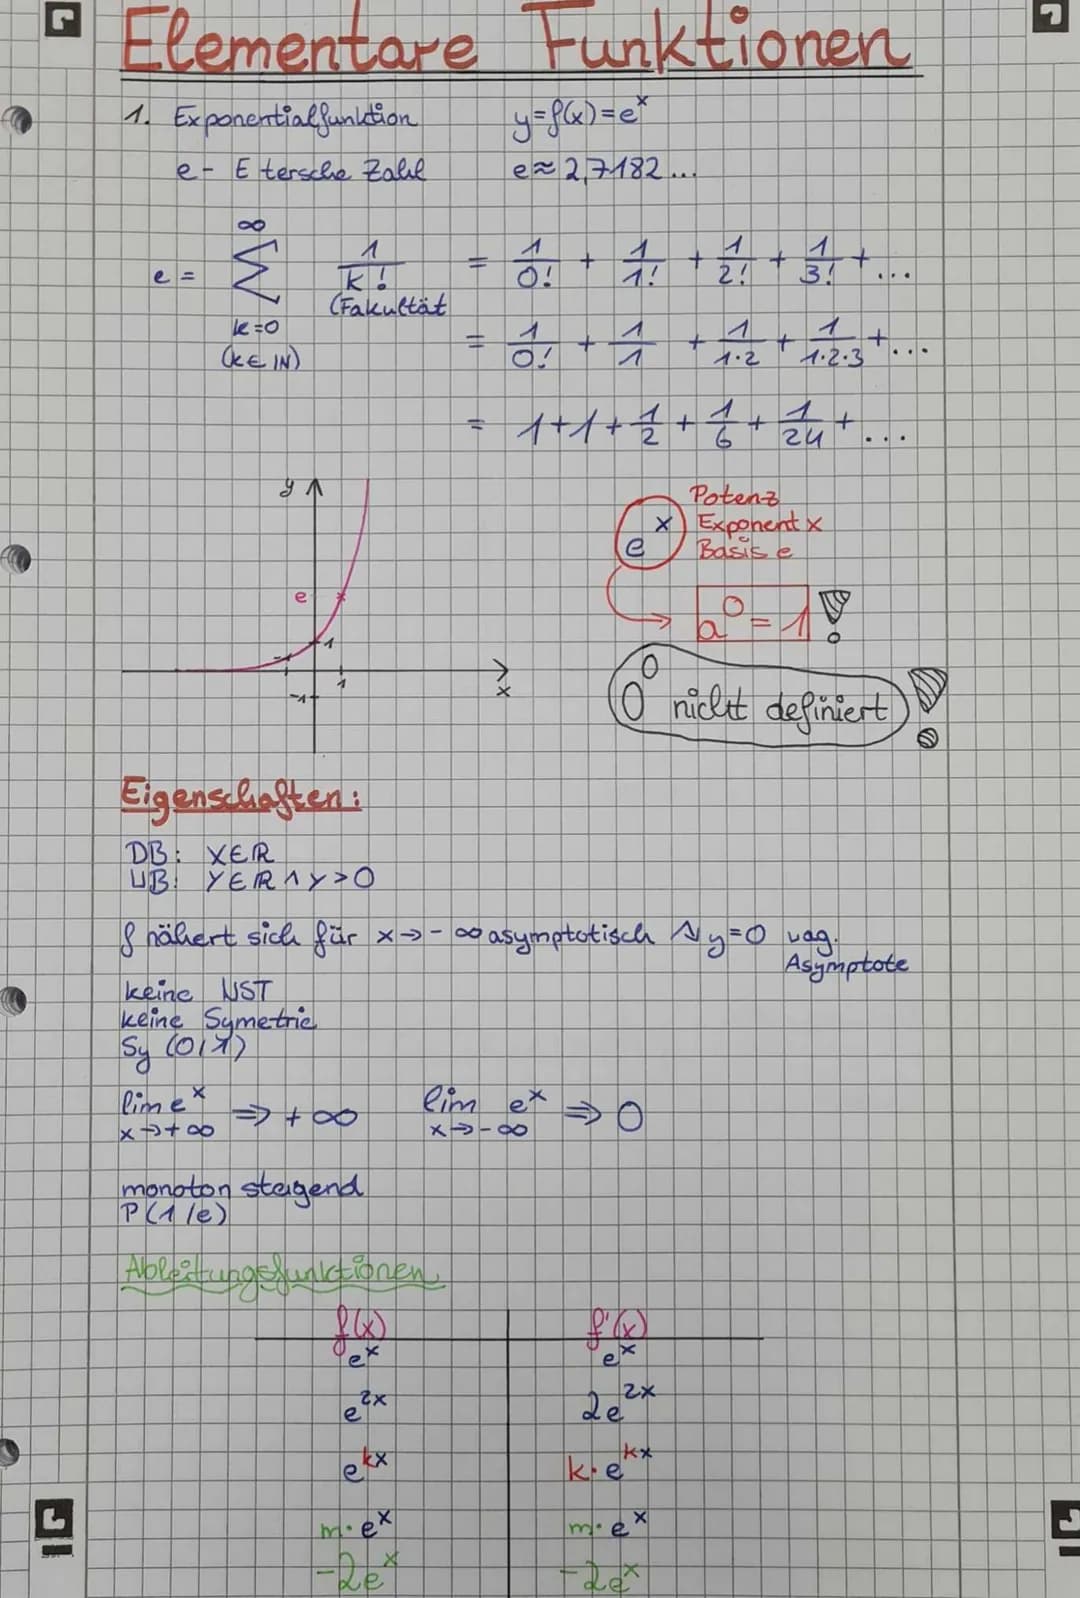 Elementare Funktionen
1. Exponentialfunktion y=f(x)=e^x
e - E tersche Zahl e≈2,7182...
e = ∑ (k=0, k∈ℕ)^∞ 1/k! (Fakultät = 1/0! + 1/1! + 1/2! + 1/3! + ...
= 1/0! + 1/1 + 1/1·2 + 1/1·2·3 + ...
= 1+1+1/2+1/6+1/24+...
y
e
1
-1
1
x
-1
e^x
Potenz
Exponent x
Basis e
a^0 = 1!
0^0 nicht definiert!
Eigenschaften:
DB: x∈ℝ
WB: y∈ℝ ∧ y>0
f nähert sich für x→-∞ asymptotisch ~ y=0 wag.
Asymptote
keine NST
keine Symetrie
Sy (0/1)
lim e^x x→+∞ ⇒ +∞ lim e^x x→-∞ ⇒ 0
monoton steigend
P(1/e)
Ableitungsfunktionen
f(x) f'(x)
e^x e^x
e^2x 2e^2x
e^kx k·e^kx
m·e^x m·e^x
-2e^x -2e^x